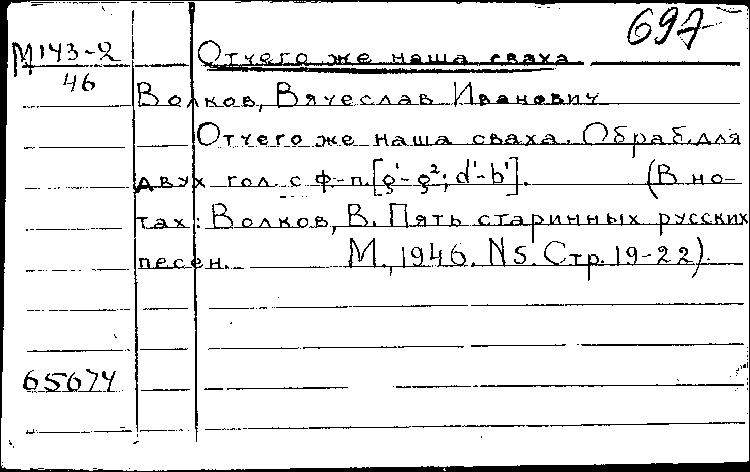 697
М143-2
46
Отчего же наша сваха
Волков, Вячеслав Иванович
Отчего же наша сваха. Обраб. для
двух гол. с ф-п. [g'-g²; d'-b']. (В но-
тах: Волков, В. Пять старинных русских
песен. М., 1946. N5. Стр. 19-22).
65674